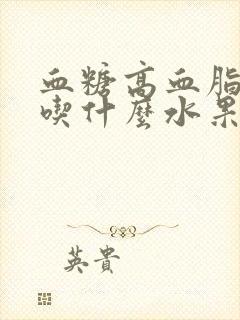 血糖高血脂
喫什麼水果
英貴